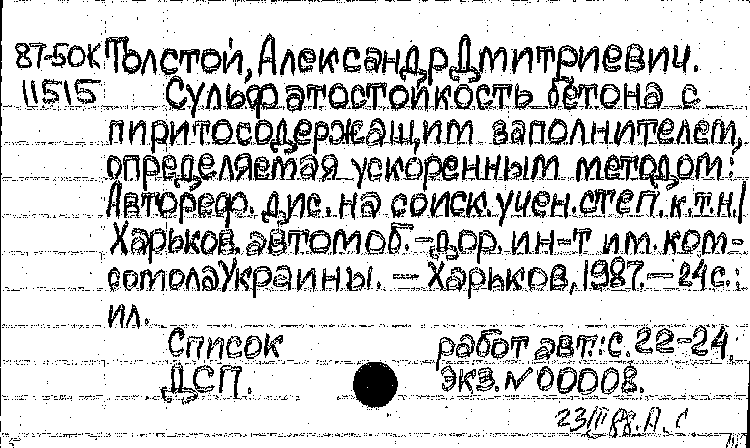 87-50К Толстой, Александр Дмитриевич.
11515 Сульфатостойкость бетона с
пиритосодержащим заполнителем,
определяемая ускоренным методом:
Автореф. дис. на соиск. учен. степ. к.т.н./
Харьков. автомоб.-дор. ин-т им. ком-
сомола Украины. — Харьков, 1987. — 24 с.:
ил.
Список работ авт.: с. 22-24.
ДСП. Экз. № 00008.